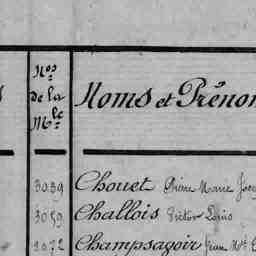 Nos de la Mle
Noms et Prénom
3039 Chouet Pierre Marie Jos
3059 Challois Victor Louis
3072 Champsavoir Jean Mie